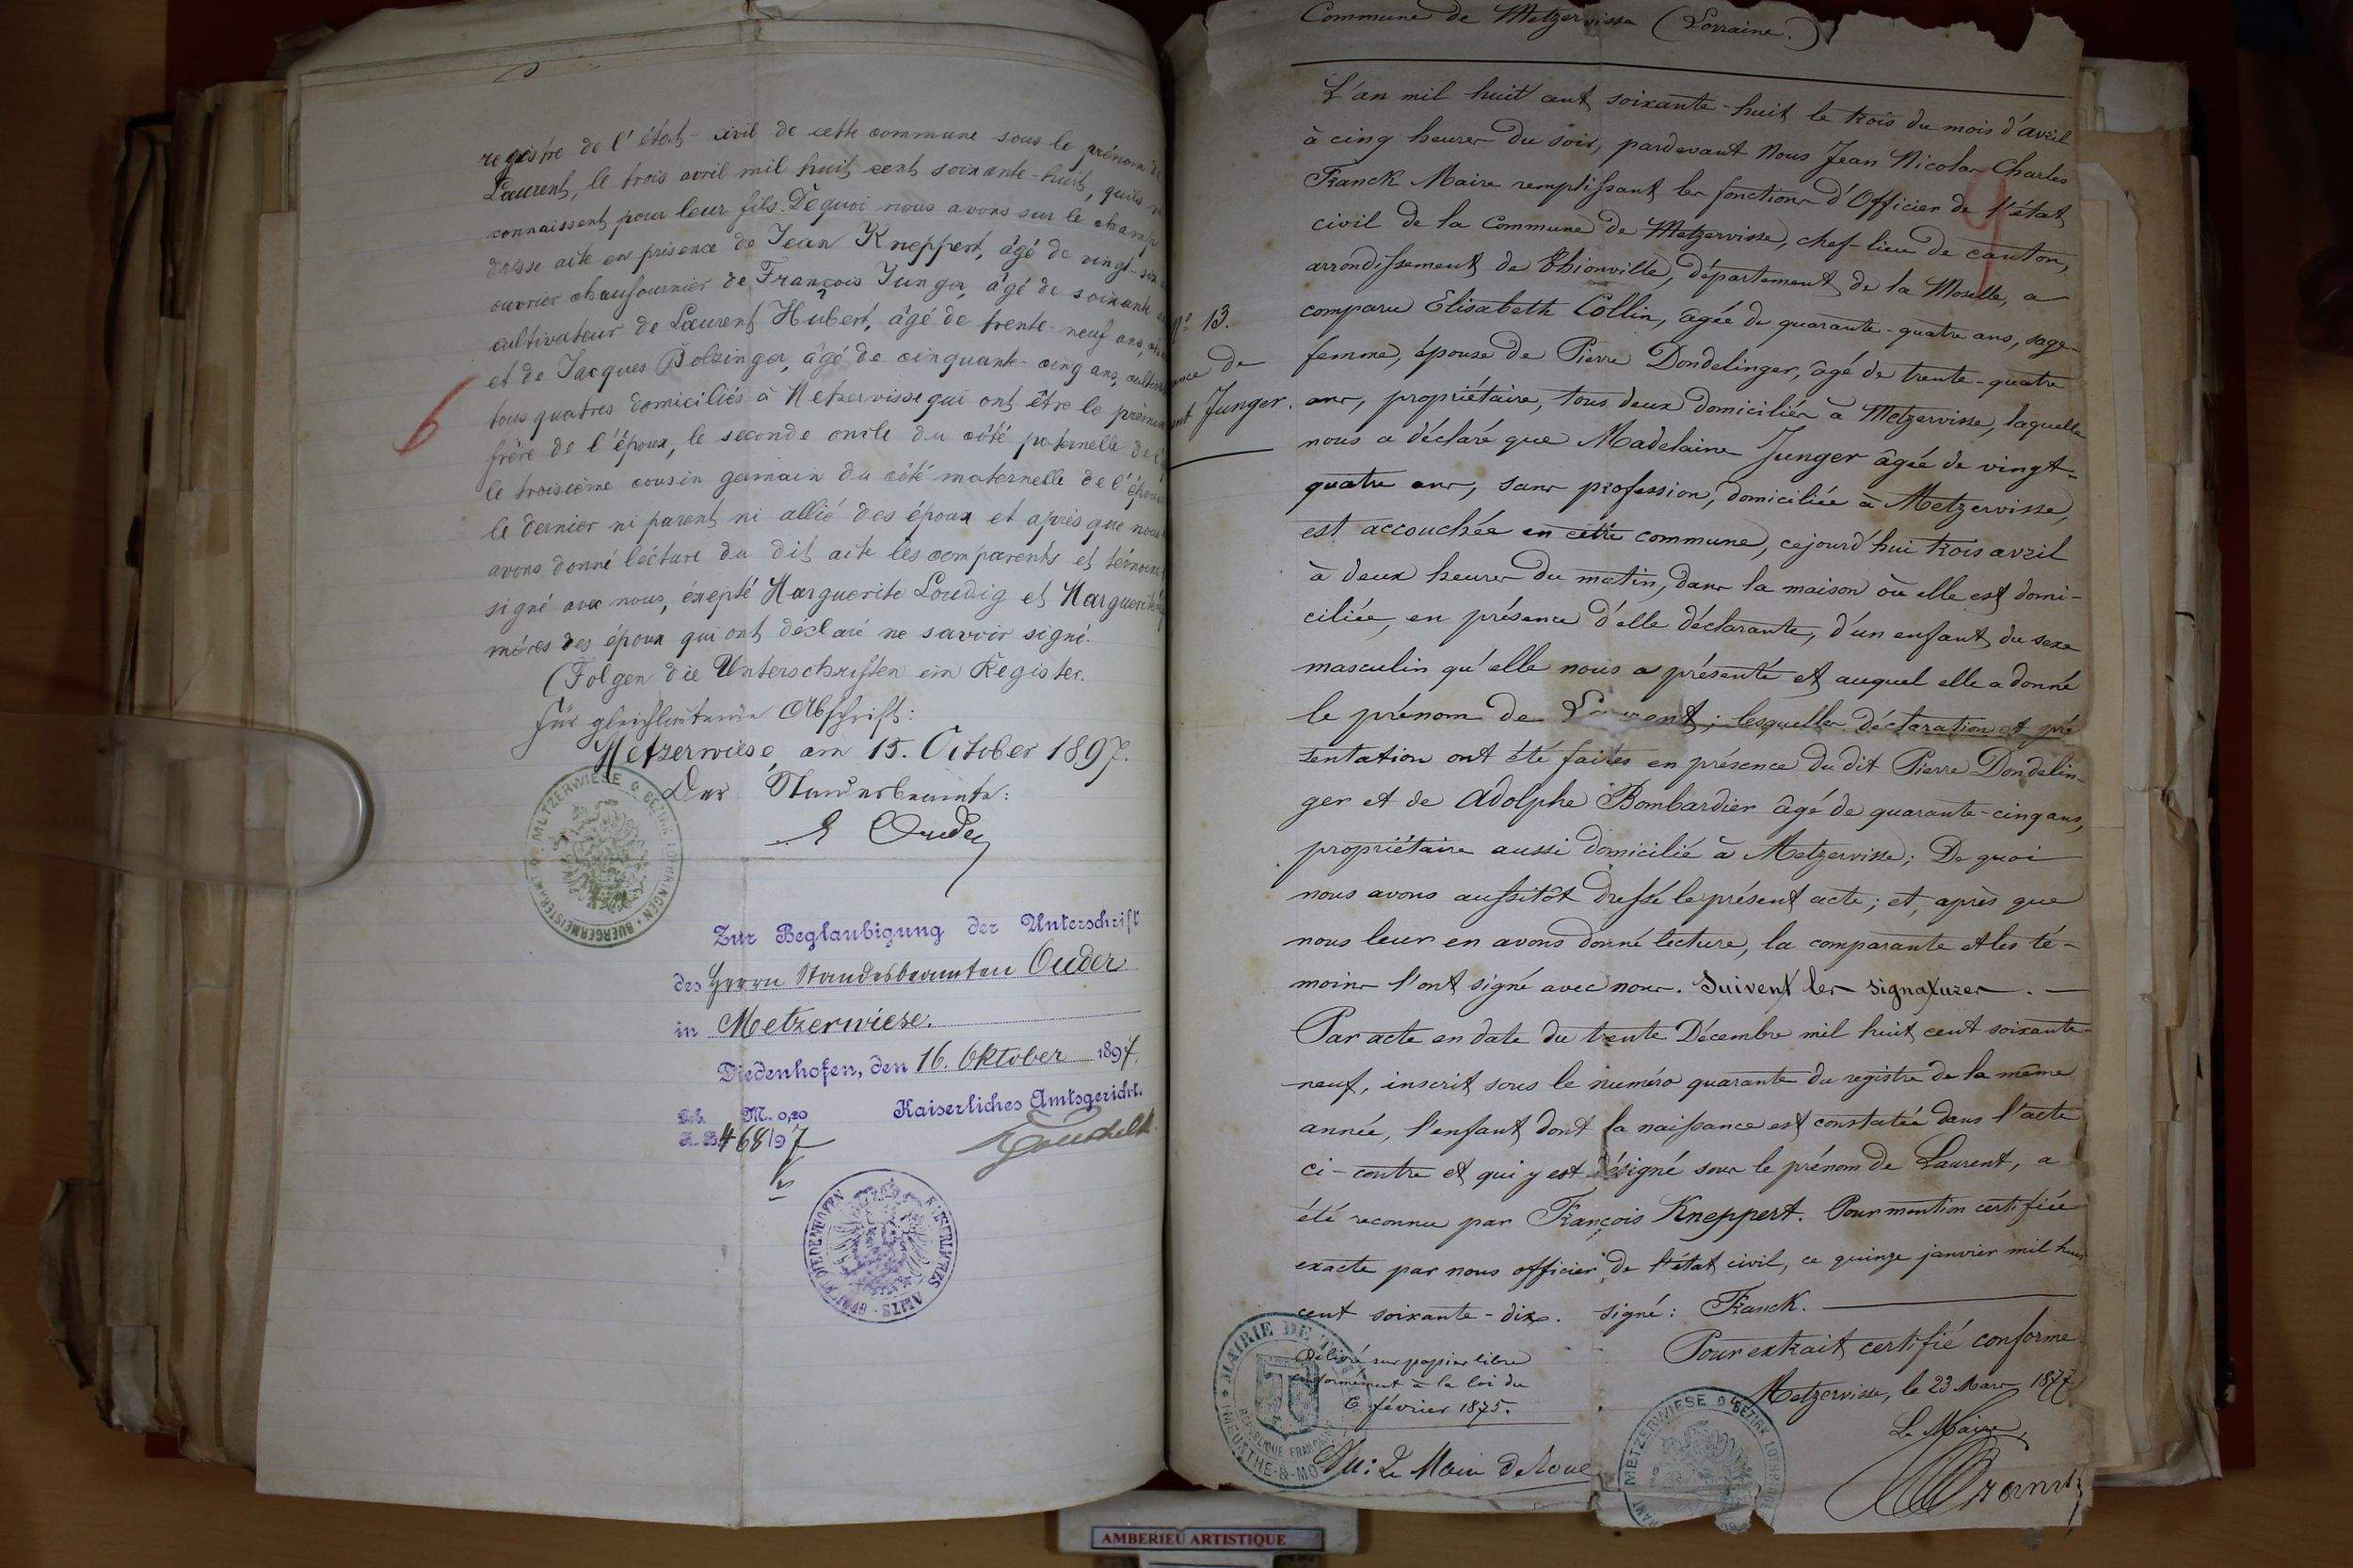 registre de l'état-civil de cette commune sous le prénom de
Laurent, le trois avril mil huit cent soixante-huit, qu'ils
connaissent pour leur fils. De quoi nous avons sur le champ
dressé acte en présence de Jean Kneppert, âgé de vingt-six
ouvrier chaufournier de François Junger, âgé de soixante
cultivateur de Laurent Hubert, âgé de trente-neuf ans,
et de Jacques Bolzinger, âgé de cinquante-cinq ans,
tous quatres domiciliés à Metzervisse qui ont être le premier
frère de l'époux, le seconde oncle du côté paternelle de
le troisième cousin germain du côté maternelle de l'épouse
le dernier ni parent ni allié des époux et après que nous
avons donné lécture du dit acte les comparents et témoins
signé avec nous, éxepté Marguerite Loudig et Marguerite
mères des époux qui ont déclaré ne savoir signé.
(Folgen die Unterschriften im Register.
Für gleichlautende Abschrift:
Metzerwiese, am 15. October 1897.
Der Standesbeamte:
Ouder
BUERGERMEISTERAMT METZERWIESE BEZIRK LOTHRINGEN
6
Zur Beglaubigung der Unterschrift
des Herrn Standesbeamten Ouder
in Metzerwiese.
Diedenhofen, den 16. Oktober 1897.
M. 0,20 Kaiserliches Amtsgericht.
468/97
KAISERLICHES AMTS-GERICHT DIEDENHOFEN
Commune de Metzervisse (Lorraine.)
9
No 13.
ance de
ent Junger.
L'an mil huit cent soixante-huit le trois du mois d'avril
à cinq heures du soir, pardevant Nous Jean Nicolas Charles
Franck Maire remplissant les fonctions d'Officier de l'état
civil de la Commune de Metzervisse, chef-lieu de canton,
arrondissement de Thionville, département de la Moselle, a
comparu Elisabeth Collin, âgée de quarante-quatre ans, sage-
femme, épouse de Pierre Dondelinger, âgé de trente-quatre
ans, propriétaire, tous deux domiciliés à Metzervisse, laquelle
nous a déclaré que Madelaine Junger âgée de vingt-
quatre ans, sans profession, domiciliée à Metzervisse,
est accouchée en cette commune, cejourd'hui trois avril
à deux heures du matin, dans la maison où elle est domi-
ciliée, en présence d'elle déclarante, d'un enfant du sexe
masculin qu'elle nous a présenté et auquel elle a donné
le prénom de Laurent; lesquelles déclaration et pré
sentation ont été faites en présence du dit Pierre Dondelin-
ger et de Adolphe Bombardier âgé de quarante-cinq ans,
propriétaire aussi domicilié à Metzervisse; De quoi
nous avons aussitôt dressé le présent acte; et, après que
nous leur en avons donné lecture, la comparante et les té-
moins l'ont signé avec nous. Suivent les signatures. —
Par acte en date du trente Décembre mil huit cent soixante-
neuf, inscrit sous le numéro quarante du registre de la même
année, l'enfant dont la naissance est constatée dans l'acte
ci-contre et qui y est désigné sous le prénom de Laurent, a
été reconnu par François Kneppert. Pour mention certifiée
exacte par nous officier de l'état civil, ce quinze janvier mil huit
cent soixante-dix. signé: Franck.
Pour extrait certifié conforme
Metzervisse, le 23 Mars 1877
Le Maire,
Délivré sur papier libre
conformément à la loi du
6 février 1875.
Vu: Le Maire
MAIRIE DE
RÉPUBLIQUE FRANÇAISE
MEURTHE-&-MO
METZERWIESE BEZIRK
AMBERIEU ARTISTIQUE